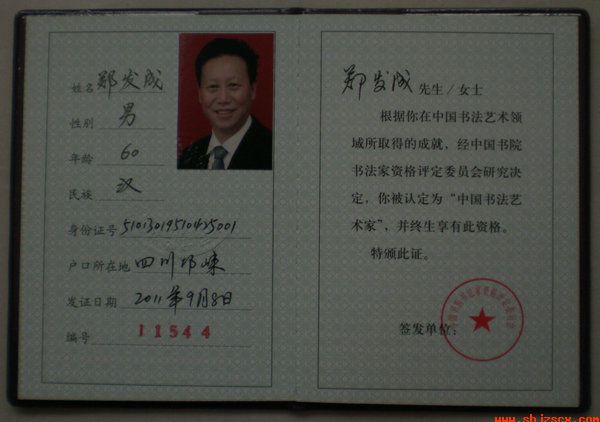 姓名 郑发成
性别 男
年龄 60
民族 汉
身份证号
户口所在地 四川邛崃
发证日期 2011年9月8日
编号 11544
郑发成 先生/女士
根据你在中国书法艺术领
域所取得的成就,经中国书院
书法家资格评定委员会研究决
定,你被认定为“中国书法艺
术家”,并终生享有此资格。
特颁此证。
签发单位: